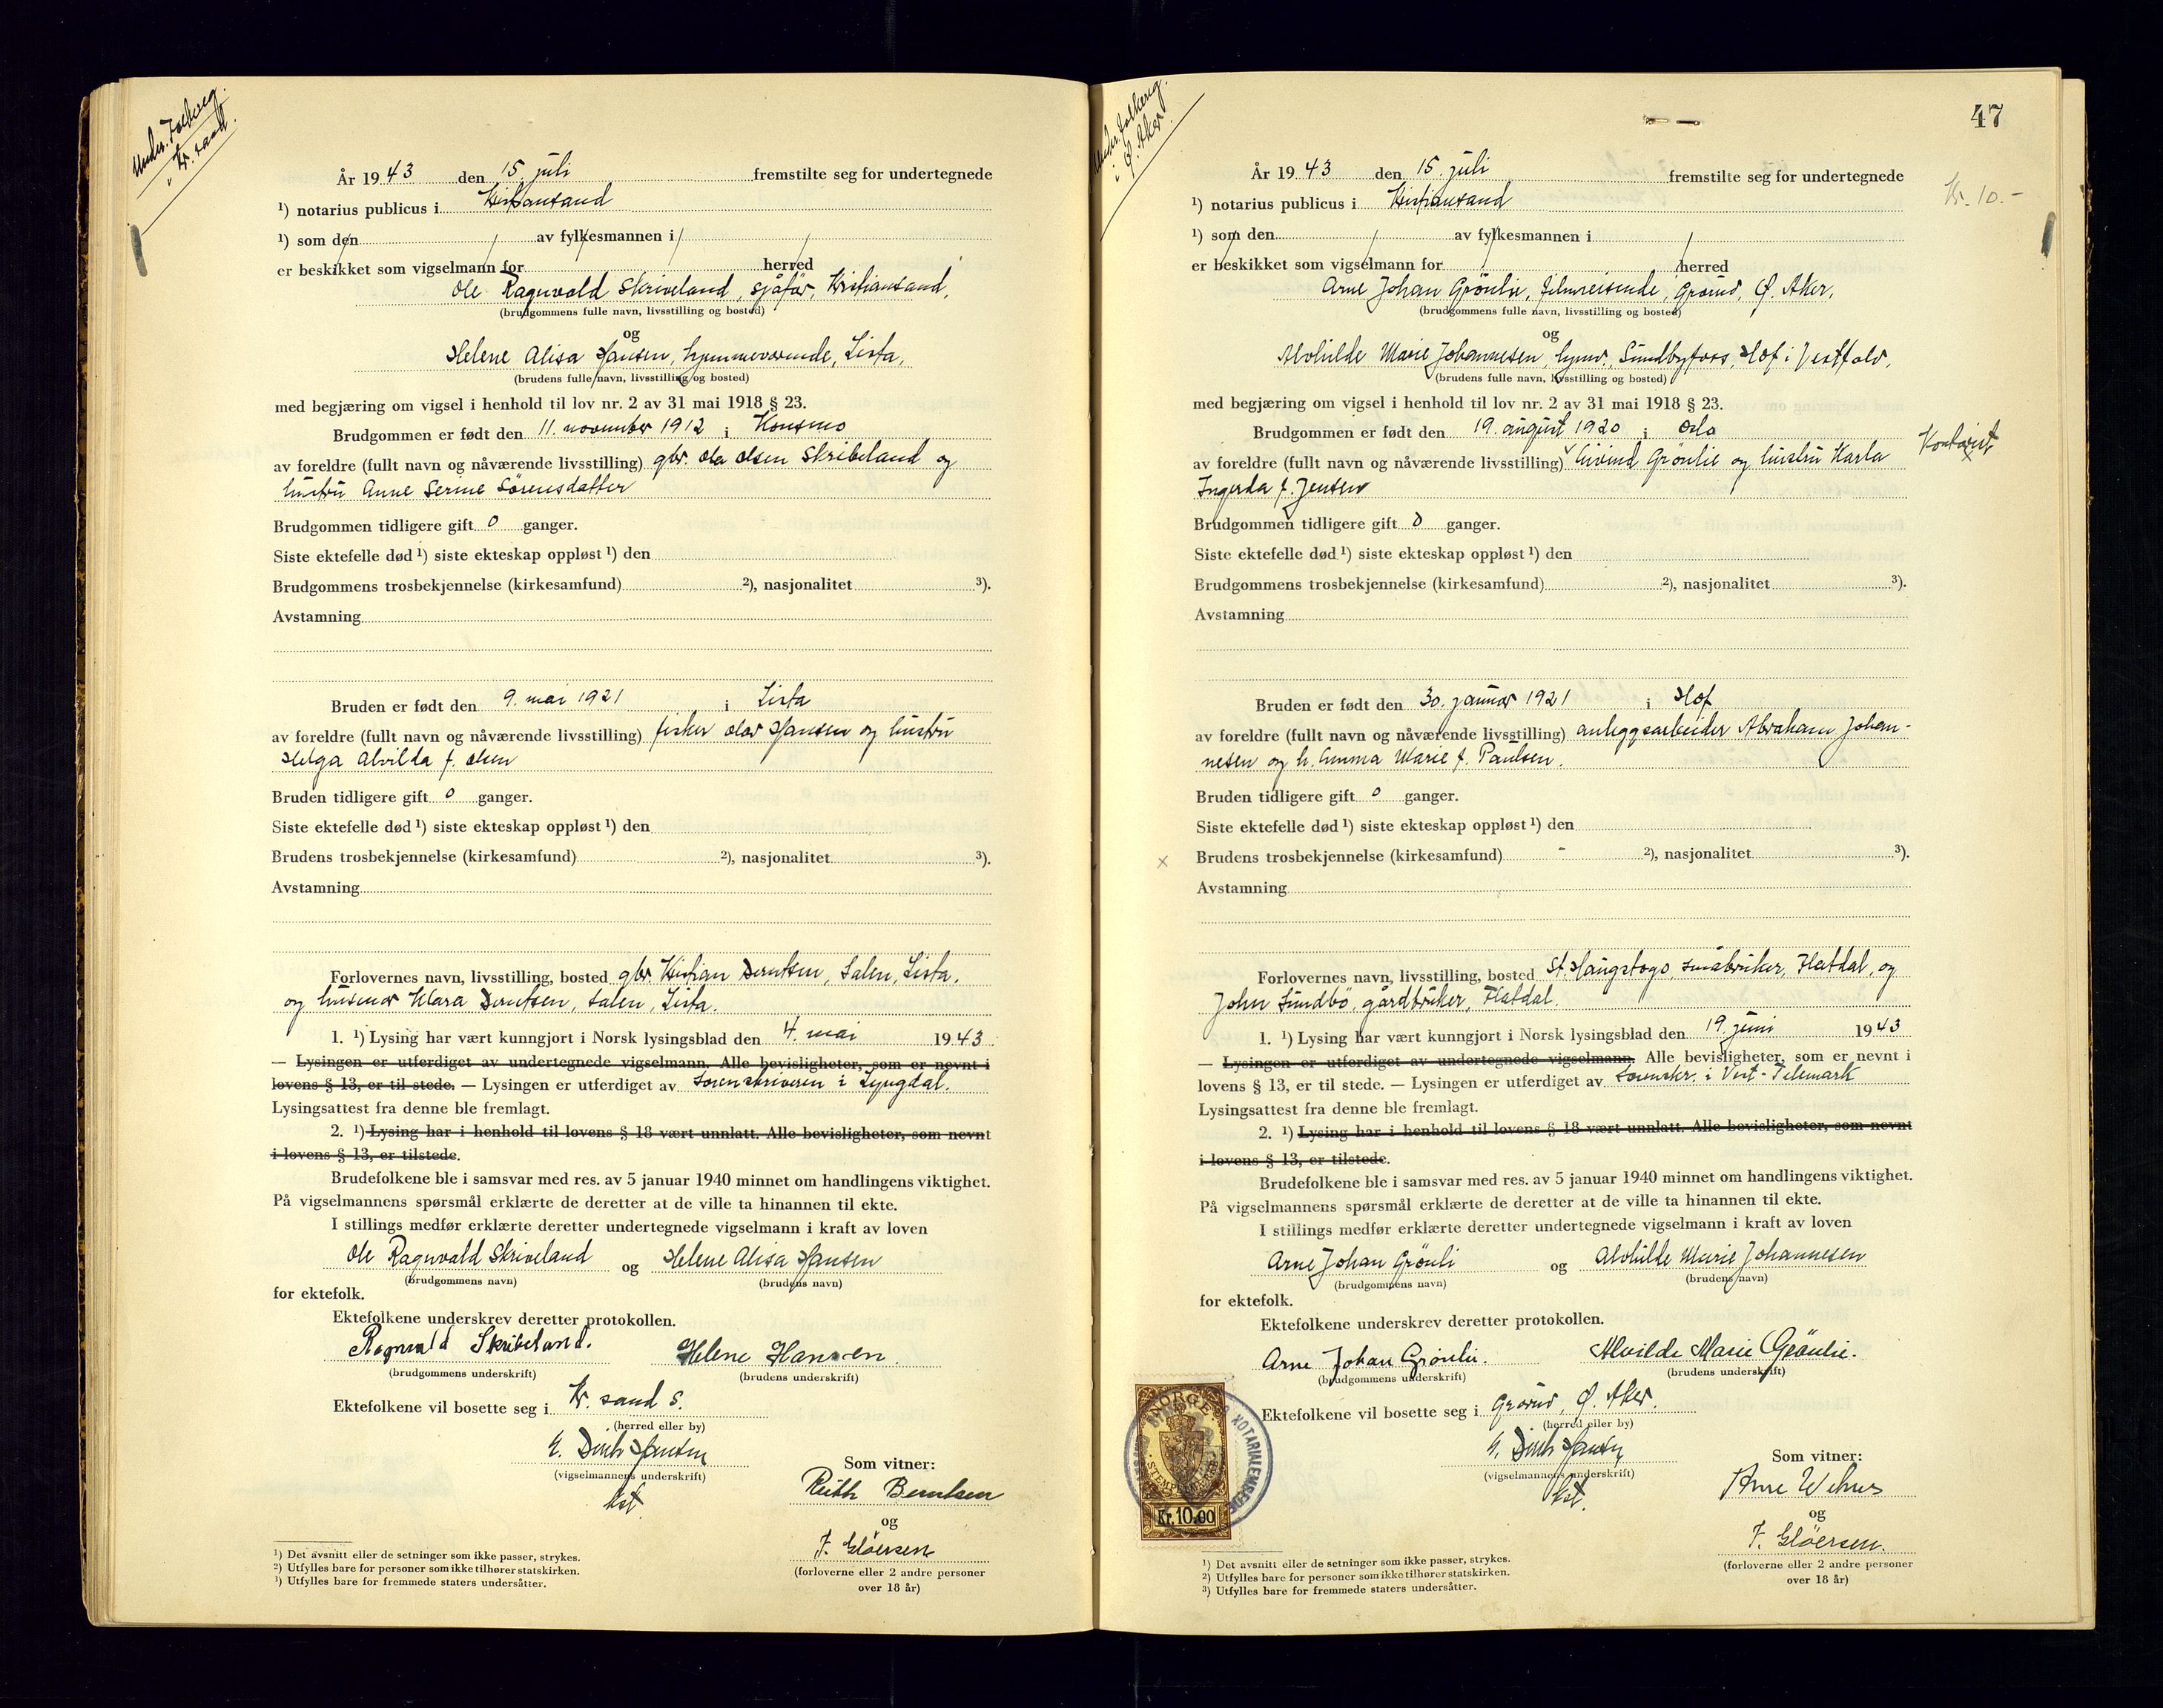 Under. Folkereg.
i Kr.sand.
År 1943 den 15. juli fremstilte seg for undertegnede
¹) notarius publicus i Kristiansand
¹) som den av fylkesmannen i
er beskikket som vigselmann for herred
Ole Ragnvald Skriveland, sjåfør, Kristiansand,
(brudgommens fulle navn, livsstilling og bosted)
og
Helene Alisa Hansen, hjemmeværende, Lista,
(brudens fulle navn, livsstilling og bosted)
med begjæring om vigsel i henhold til lov nr. 2 av 31 mai 1918 § 23.
Brudgommen er født den 11. november 1912 i Konsmo
av foreldre (fullt navn og nåværende livsstilling) gbr. Ola Olsen Skribeland og
hustru Anne Serine Sörensdatter
Brudgommen tidligere gift 0 ganger.
Siste ektefelle død ¹) siste ekteskap oppløst ¹) den
Brudgommens trosbekjennelse (kirkesamfund) ²), nasjonalitet ³).
Avstamning
Bruden er født den 9. mai 1921 i Lista
av foreldre (fullt navn og nåværende livsstilling) fisker Olav Hansen og hustru
Helga Alvilda f. Olsen
Bruden tidligere gift 0 ganger.
Siste ektefelle død ¹) siste ekteskap oppløst ¹) den
Brudens trosbekjennelse (kirkesamfund) ²), nasjonalitet ³).
Avstamning
Forlovernes navn, livsstilling, bosted gbr. Kristian Berntsen, Salen, Lista,
og husmor Klara Berntsen, Salen, Lista.
1. ¹) Lysing har vært kunngjort i Norsk lysingsblad den 4. mai 1943
— Lysingen er utferdiget av undertegnede vigselmann. Alle bevisligheter, som er nevnt i
lovens § 13, er til stede. — Lysingen er utferdiget av sorenskriveren i Lyngdal.
Lysingsattest fra denne ble fremlagt.
2. ¹) Lysing har i henhold til lovens § 18 vært unnlatt. Alle bevisligheter, som nevnt
i lovens § 13, er tilstede.
Brudefolkene ble i samsvar med res. av 5 januar 1940 minnet om handlingens viktighet.
På vigselmannens spørsmål erklærte de deretter at de ville ta hinannen til ekte.
I stillings medfør erklærte deretter undertegnede vigselmann i kraft av loven
Ole Ragnvald Skriveland og Helene Alisa Hansen
(brudgommens navn) (brudens navn)
for ektefolk.
Ektefolkene underskrev deretter protokollen.
Ragnvald Skribeland. Helene Hansen.
(brudgommens underskrift) (brudens underskrift)
Ektefolkene vil bosette seg i Kr. sand S.
(herred eller by)
(vigselmannens underskrift)
kst.
Som vitner:
Ruth Berntsen
og
F. Glöersen
(forloverne eller 2 andre personer
over 18 år)
¹) Det avsnitt eller de setninger som ikke passer, strykes.
²) Utfylles bare for personer som ikke tilhører statskirken.
³) Utfylles bare for fremmede staters undersåtter.
47
Under. Folkereg.
i Ø. Aker
Kr. 10.-
År 1943 den 15. juli fremstilte seg for undertegnede
¹) notarius publicus i Kristiansand
¹) som den av fylkesmannen i
er beskikket som vigselmann for herred
Arne Johan Grönlie, filmreisende, Grorud, Ø. Aker,
(brudgommens fulle navn, livsstilling og bosted)
og
Alvhilde Marie Johannesen, hjmv., Sundbyfoss, Hof i Vestfold,
(brudens fulle navn, livsstilling og bosted)
med begjæring om vigsel i henhold til lov nr. 2 av 31 mai 1918 § 23.
Brudgommen er født den 19. august 1920 i Oslo
av foreldre (fullt navn og nåværende livsstilling) Eivind Grönlie og hustru Karla
Kontorist
Ingerda f. Jensen
Brudgommen tidligere gift 0 ganger.
Siste ektefelle død ¹) siste ekteskap oppløst ¹) den
Brudgommens trosbekjennelse (kirkesamfund) ²), nasjonalitet ³).
Avstamning
Bruden er født den 30. januar 1921 i Hof
av foreldre (fullt navn og nåværende livsstilling) anleggsarbeider Abraham Johan-
nesen og h. Emma Marie f. Paulsen.
Bruden tidligere gift 0 ganger.
Siste ektefelle død ¹) siste ekteskap oppløst ¹) den
× Brudens trosbekjennelse (kirkesamfund) - ²), nasjonalitet ³).
Avstamning
Forlovernes navn, livsstilling, bosted St. Haugstogo, småbruker, Flatdal, og
John Sundbö, gårdbruker, Flatdal.
1. ¹) Lysing har vært kunngjort i Norsk lysingsblad den 19. juni 1943
— Lysingen er utferdiget av undertegnede vigselmann. Alle bevisligheter, som er nevnt i
lovens § 13, er til stede. — Lysingen er utferdiget av sorenskr. i Vest-Telemark
Lysingsattest fra denne ble fremlagt.
2. ¹) Lysing har i henhold til lovens § 18 vært unnlatt. Alle bevisligheter, som nevnt
i lovens § 13, er tilstede.
Brudefolkene ble i samsvar med res. av 5 januar 1940 minnet om handlingens viktighet.
På vigselmannens spørsmål erklærte de deretter at de ville ta hinannen til ekte.
I stillings medfør erklærte deretter undertegnede vigselmann i kraft av loven
Arne Johan Grönli og Alvhilde Marie Johannesen
(brudgommens navn) (brudens navn)
for ektefolk.
Ektefolkene underskrev deretter protokollen.
Arne Johan Grönlie. Alvilde Marie Grönlie.
(brudgommens underskrift) (brudens underskrift)
Ektefolkene vil bosette seg i Grorud, Ø. Aker.
(herred eller by)
(vigselmannens underskrift)
kst.
NORGE
STEMPELMERKE
Kr. 10.00
NOTARIALEMBEDE
Som vitner:
Arne Wehus
og
F. Glöersen.
(forloverne eller 2 andre personer
over 18 år)
¹) Det avsnitt eller de setninger som ikke passer, strykes.
²) Utfylles bare for personer som ikke tilhører statskirken.
³) Utfylles bare for fremmede staters undersåtter.